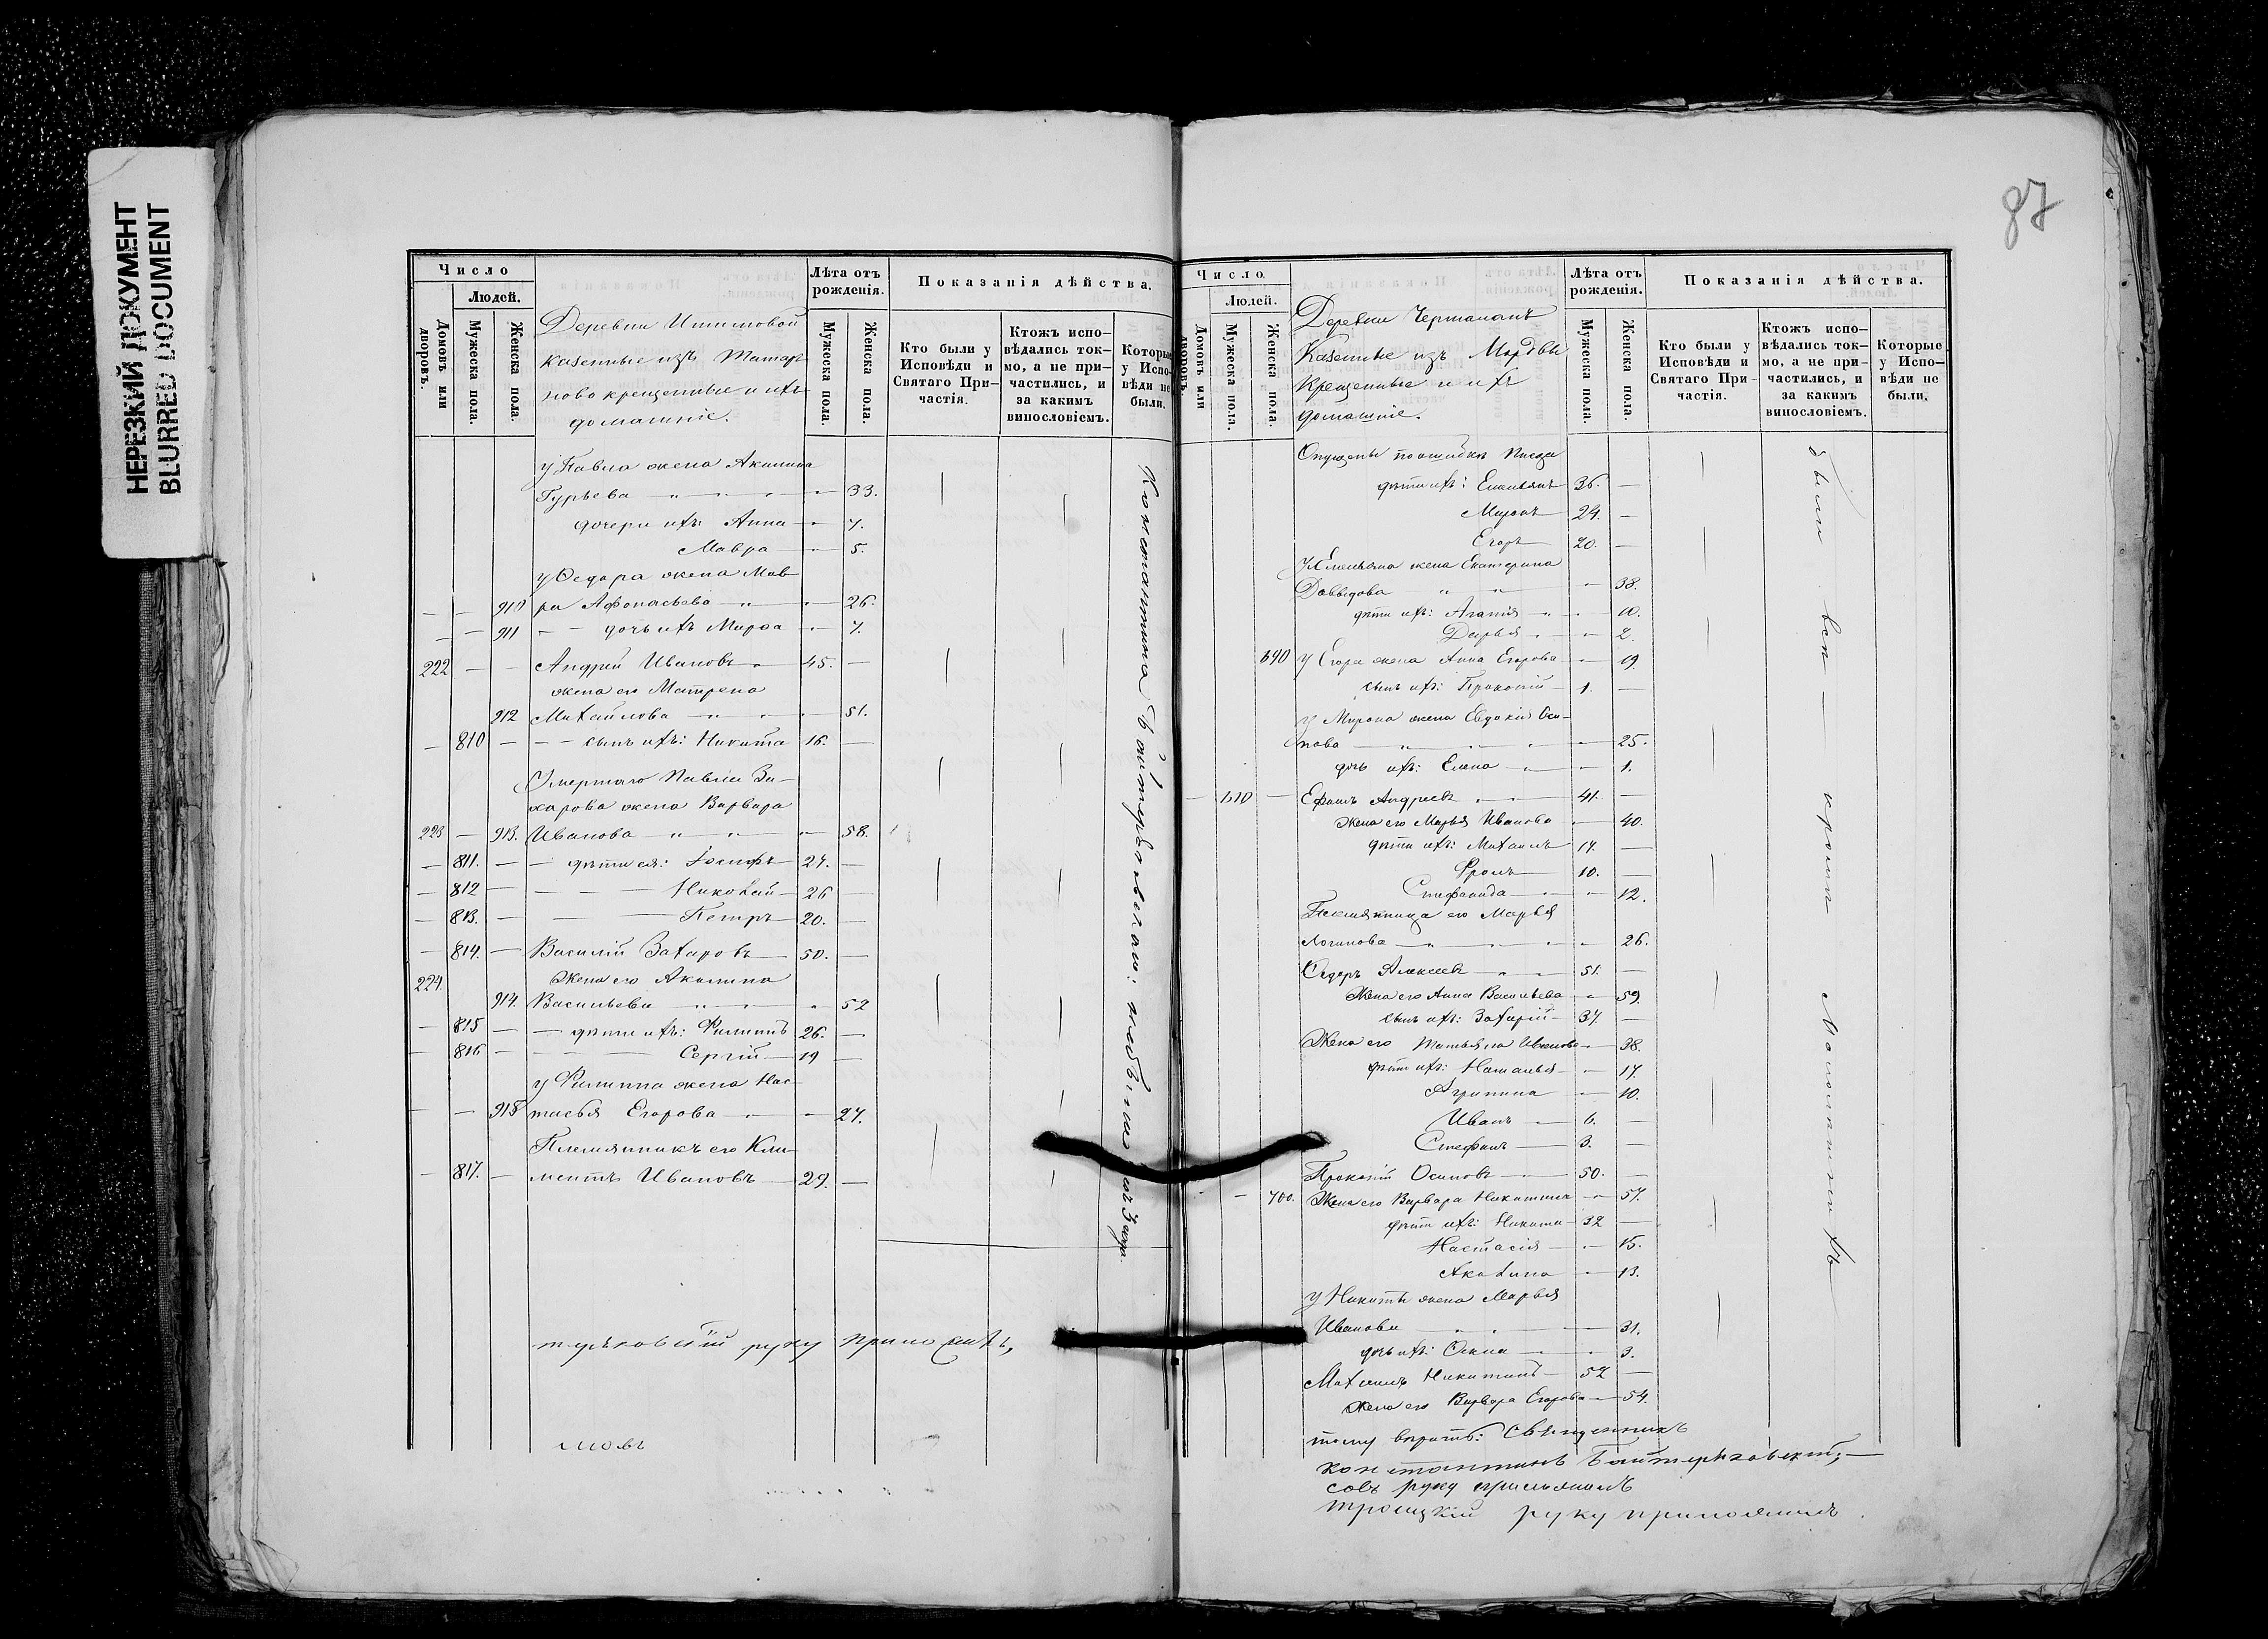 НЕРЕЗКИЙ ДОКУМЕНТ
BLURRED DOCUMENT
87
Число
Людей.
Домовъ или дворовъ.
Мужеска пола.
Женска пола.
Деревни
казенные изъ Татаръ
ново крещенные и ихъ
домашніе.
Лѣта отъ рожденія.
Мужеска пола.
Женска пола.
Показанія дѣйства.
Кто были у Исповѣди и Святаго Причастія.
Ктожъ исповѣдались токмо, а не причастились, и за какимъ винословіемъ.
Которые у Исповѣди не были.
у Павла жена Акилина
Гурьева 33.
дочери ихъ: Анна 7.
Мавра 5.
у Ѳедора жена Мав-
910 ра Афонасьева 26.
911 дочь ихъ Марѳа 7.
222 Андрей Ивановъ 45.
жена его Матрена
912 Михайлова 51.
810 сынъ ихъ: Никита 16.
Умершаго Павла За-
харова жена Варвара
223 913. Иванова 58.
811. дѣти ея: Іосифъ 27.
812 Николай 26
813. Петръ 20.
814. Василій Захаровъ 50.
224. Жена его Акилина
914. Васильева 52
815 дѣти ихъ: Филиппъ 26.
816 Сергій 19
у Филиппа жена Нас-
915 тасья Егорова 27.
Племянникъ его Кли-
817. ментъ Ивановъ 29.
Константина
руку приложилъ,
Число.
Людей.
Домовъ или дворовъ.
Мужеска пола.
Женска пола.
Деревни Чертанъ
Казенные изъ Мордвы
Крещенные и ихъ
домашніе.
Лѣта отъ рожденія.
Мужеска пола.
Женска пола.
Показанія дѣйства.
Кто были у Исповѣди и Святаго Причастія.
Ктожъ исповѣдались токмо, а не причастились, и за какимъ винословіемъ.
Которые у Исповѣди не были.
Опущены по ошибкѣ писца
дѣти ихъ: Емельянъ 36.
Миронъ 24.
Егоръ 20.
У Емельяна жена Екатерина
Давыдова 38.
дѣти ихъ: Агапія 10.
Дарья 2.
690 у Егора жена Анна Егорова 19
сынъ ихъ: Прокопій 1.
у Мирона жена Евдокія Оси-
пова 25.
дочь ихъ: Елена 1.
610 Ефимъ Андреевъ 41.
Жена его Марья Иванова 40.
дѣти ихъ: Михаилъ 17.
Фролъ 10.
Стефанида 12.
Племянница его Марья
Логинова 26.
Ѳедоръ Алексеевъ 51.
Жена его Анна Васильева 59.
сынъ ихъ: Захарій 37.
Жена его Татьяна Иванова 38.
дѣти ихъ: Наталья 17.
Агрипина 10.
Иванъ 6.
Стефанъ 3.
Прокопій Осиповъ 50.
700. Жена его Варвара Никитина 57.
дѣти ихъ: Никита 32
Настасія 15.
Акулина 13.
у Никиты жена Марья
Иванова 31.
дочь ихъ: 3.
Михаилъ Никитинъ 52
Жена его Варвара Егорова 54.
были всѣ кромѣ
тому вѣрить: Священникъ
Константинъ
совъ руку приложилъ
Троицкій руку приложилъ.